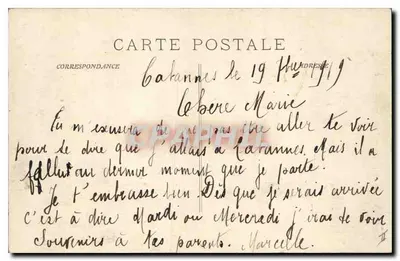 CARTE POSTALE
CORRESPONDANCE ADRESSE
Cabannes le 19 7bre 1919
Chere Marie
Tu m'excusera de ne pas être aller te voir
pour se dire que j'allais à Cabannes. Mais il a
fallut au dernier moment que je parte.
Je t'embrasse bien. Dès que je serais arrivée
c'est à dire Mardi ou Mercredi j'irai te voir
Souvenirs à tes parents. Marcelle.